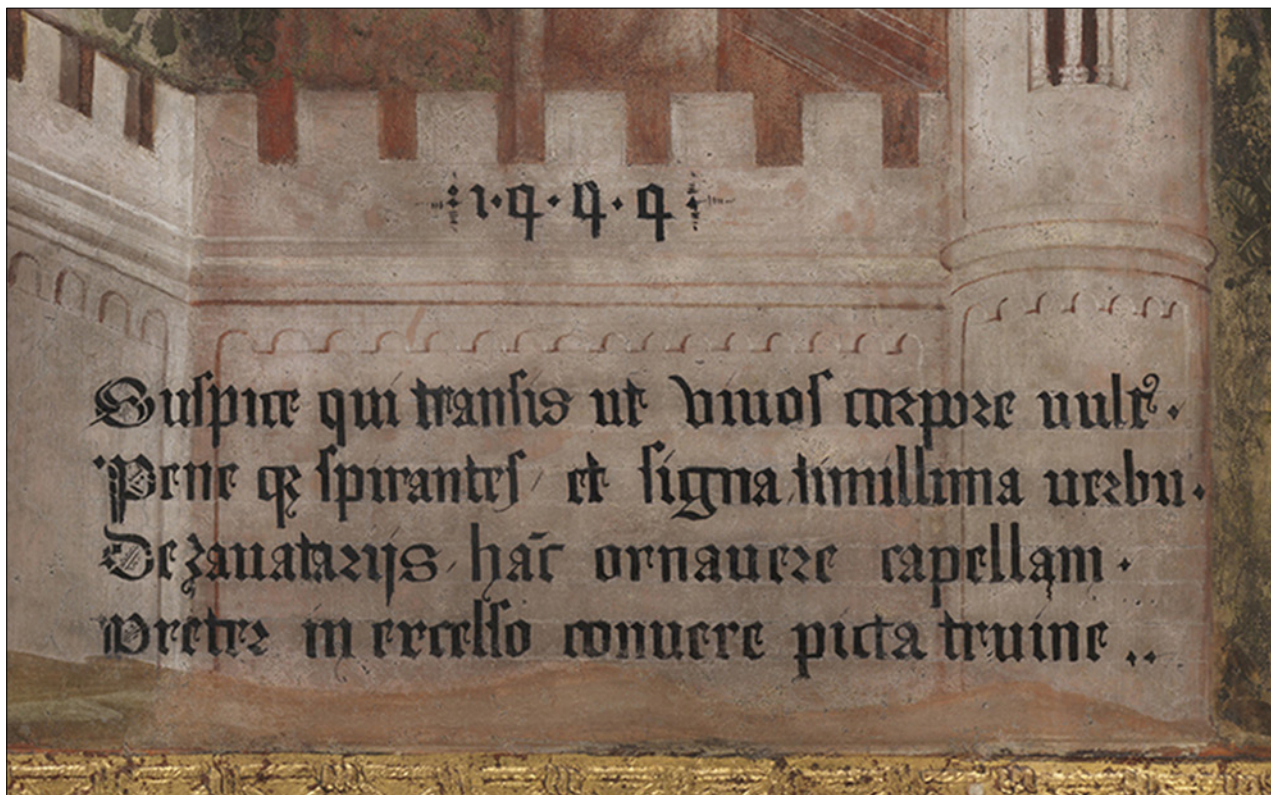 ·1·4·4·4·
Suspice qui transis ut viuos corpore uult9·
Pene q3 spirantes / et signa simillima uerbu·
De zauatarijs hāc ornauere capellam·
Preter in excelso conuexe picta truine··